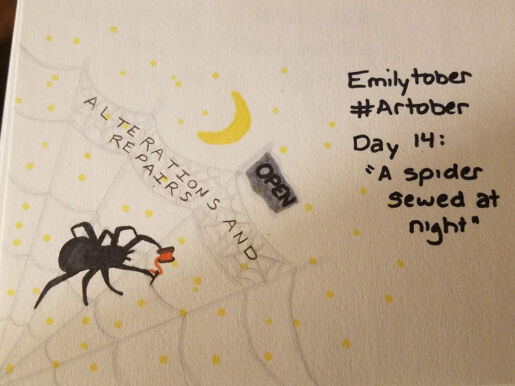 ALTERATIONS AND
REPAIRS
OPEN
Emilytober
#Artober
Day 14:
"A spider
sewed at
night"